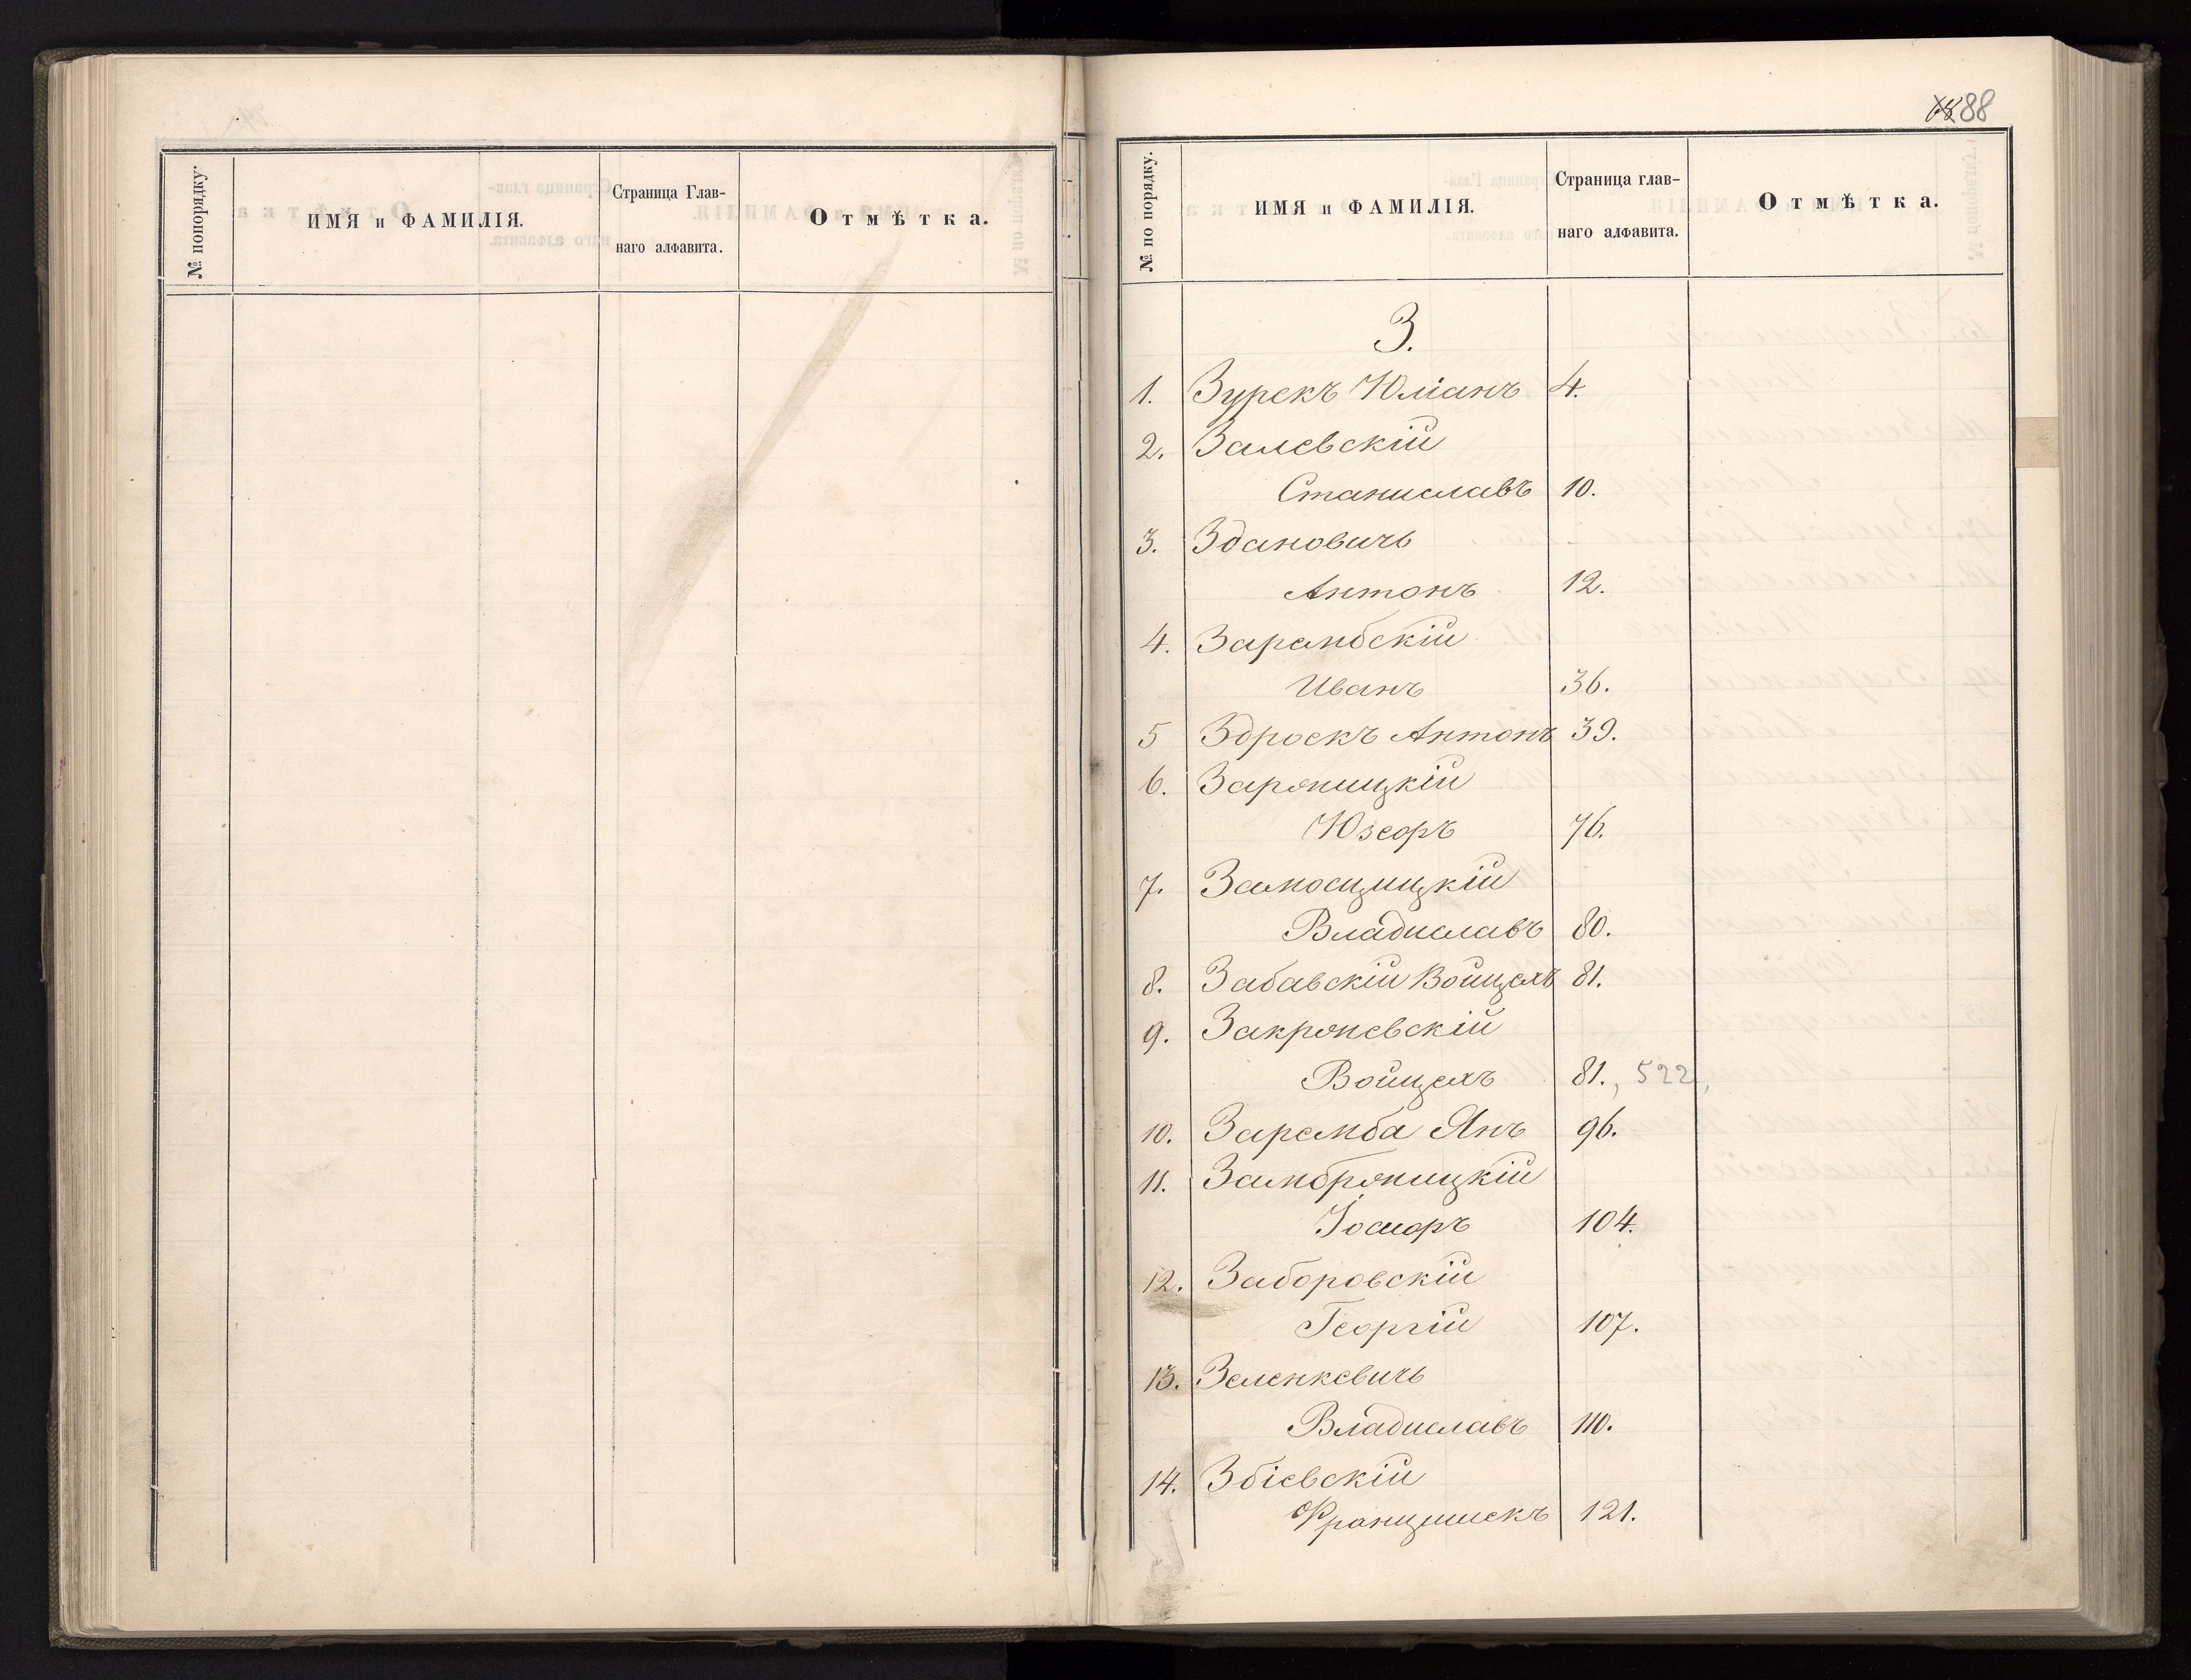 № попорядку.
ИМЯ и ФАМИЛІЯ.
Страница Глав-
наго алфавита.
Отмѣтка.
88
№ по порядку.
ИМЯ и ФАМИЛІЯ.
Страница глав-
наго алфавита.
Отмѣтка.
З.
1. Зурекъ Юліанъ 4.
2. Залевскій
Станиславъ 10.
3. Здановичъ
Антонъ 12.
4. Зарембскій
Иванъ 36.
5 Здроекъ Антонъ 39.
6. Заремицкій
Юзефъ 76.
7. Замощицкій
Владиславъ 80.
8. Забавскій Войцехъ 81.
9. Закржевскій
Войцехъ 81., 522,
10. Заремба Янъ 96.
11. Замбржицкій
Іосифъ 104.
12. Заборовскій
Георгій 107.
13. Зеленкевичъ
Владиславъ 110.
14. Збіевскій
Францишекъ 121.